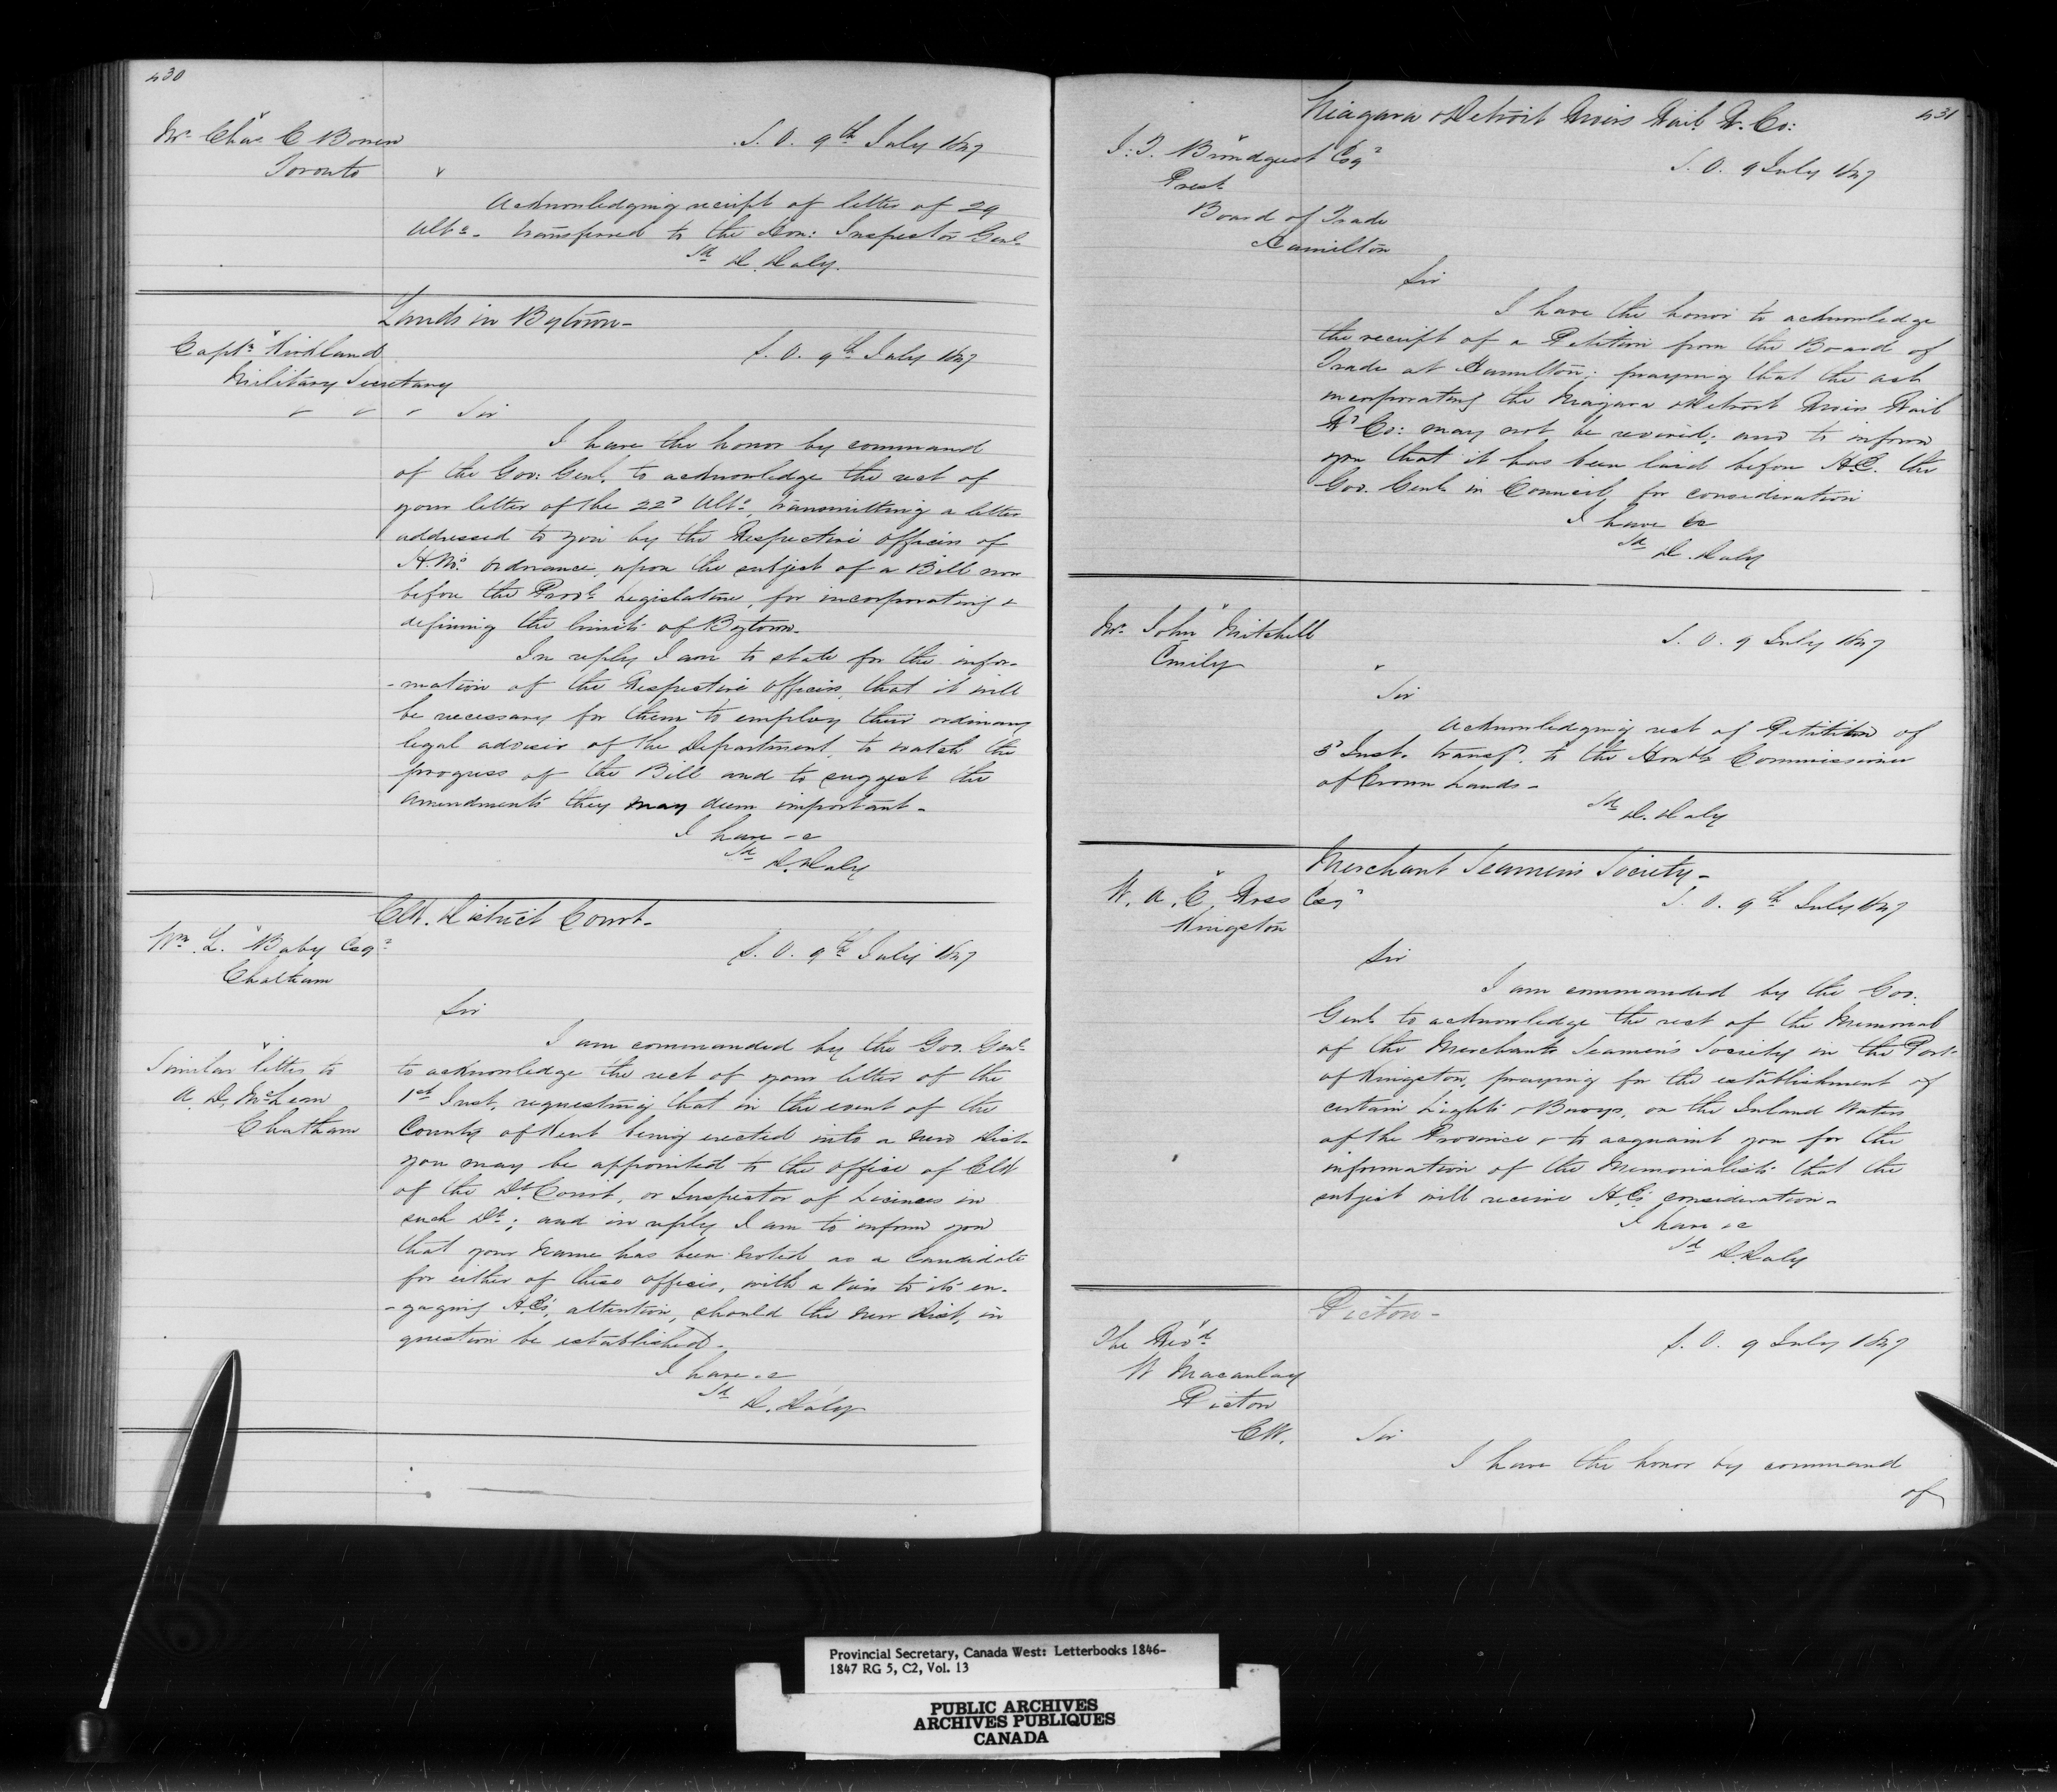 430
Mr. Chas. C Bowen
Toronto
S. O. 9th July 1847
Acknowledging receipt of letter of 29
Ulto. transferred to the Hon: Inspector Genl.
Sd D. Daly.
Lands in Bytown-
Captn. Kirkland
Military Secretary
S. O. 9th July 1847
Sir
I have the honor by command
of the Gov: Genl. to acknowledge the rect of
your letter of the 22d Ulto., transmitting a letter
addressed to you by the Respective officers of
H.M's. Ordnance, upon the subject of a Bill now
before the Provl. Legislature, for incorporating &
defining the limits of Bytown-
In reply I am to state for the infor-
-mation of the Respective Officers, that it will
be necessary for them to employ their ordinary
legal adviser of the Department, to watch the
progress of the Bill and to suggest the
amendments they may deem important-
I have &c
Sd D. Daly
Clk. District Court-
Wm. L. Baby Esqr
Chatham
S. O. 9th July 1847
Sir
I am commanded by the Gov. Genl.
to acknowledge the rect of your letter of the
1st Inst. requesting that in the event of the
County of Kent being erected into a new Dist-
you may be appointed to the office of Clk
of the Dt. Court, or Inspector of Licences in
such Dt.; and in reply I am to inform you
that your name has been noted as a Candidate
for either of these offices, with a view to its en-
-gaging H.E's. attention, should the new Dist. in
question be established-
I have &c
Sd D. Daly
Similar letter to
A. D. McLean
Chatham
431
Niagara & Detroit Rivers Rail R. Co:
J. T. Brundgeest Esqr
Prest.
Board of Trade
Hamilton
S. O. 9 July 1847
Sir
I have the honor to acknowledge
the receipt of a Petition from the Board of
Trade at Hamilton; praying that the act
incorporating the Niagara & Detroit Rivers Rail
Rd Co: may not be revived; and to inform
you that it has been laid before H.E. the
Gov. Genl. in Council, for consideration
I have &c
Sd D. Daly
Mr. John Mitchell
Emily
S. O. 9 July 1847
Sir
Acknowledging rect of Petition of
5th Inst. transfd. to the Honble Commissioner
of Crown Lands-
Sd D. Daly
Merchant Seamen's Society-
W. A. C. Ross Esqr
Kingston
S. O. 9th July 1847
Sir
I am commanded by the Gov.
Genl. to acknowledge the rect of the Memorial
of the Merchants Seamen's Society in the Port
of Kingston, praying for the establishment of
certain Lights & Buoys, on the Inland Waters
of the Province & to acquaint you for the
information of the Memorialists that the
subject will receive H.E's consideration-
I have &c
Sd D. Daly
Picton-
The Revd.
W Macaulay
Picton
CW.
S. O. 9 July 1847
Sir
I have the honor by command
of
Provincial Secretary, Canada West: Letterbooks 1846-
1847 RG 5, C2, Vol. 13
PUBLIC ARCHIVES
ARCHIVES PUBLIQUES
CANADA